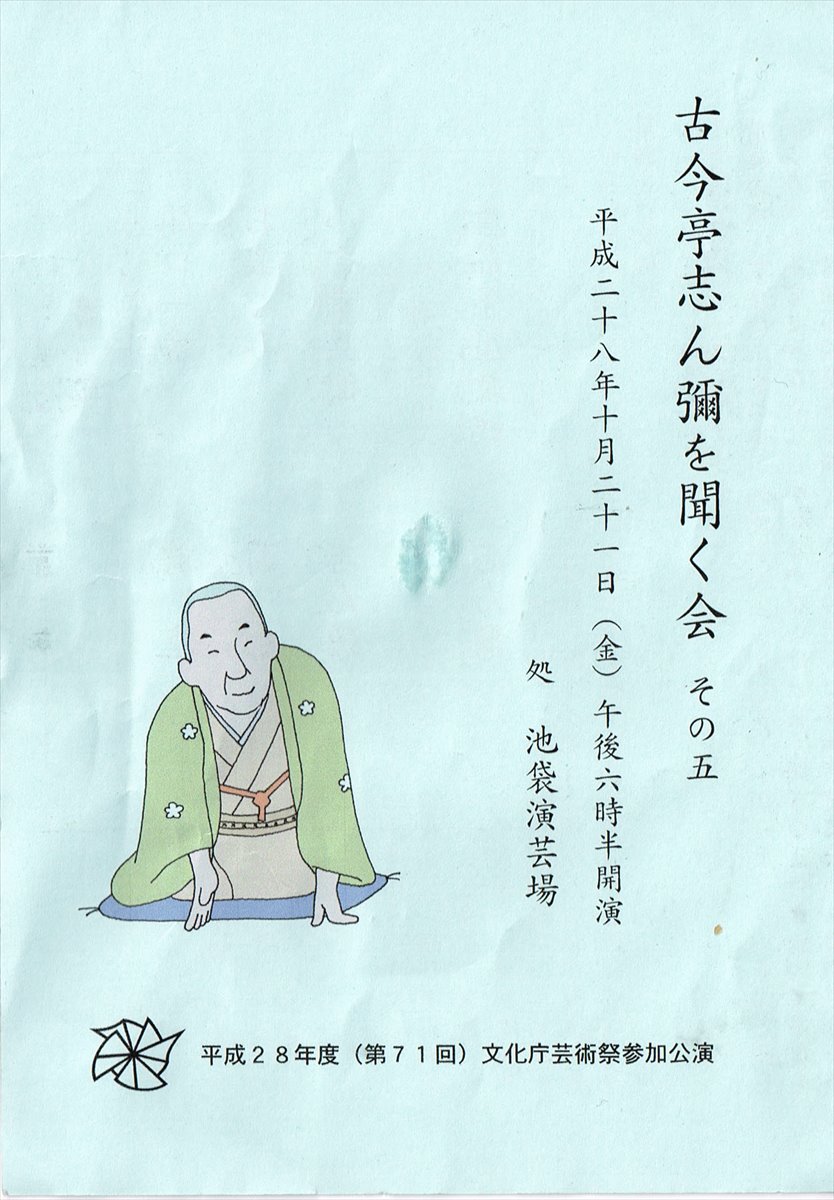 古今亭志ん彌を聞く会 その五
平成二十八年十月二十一日（金）午後六時半開演
処 池袋演芸場
平成２８年度（第７１回）文化庁芸術祭参加公演